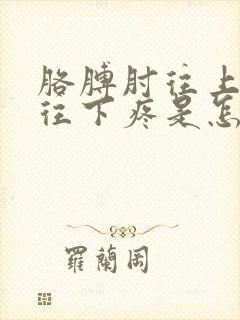 胳膊肘往上
往下疼是怎
羅蘭岡